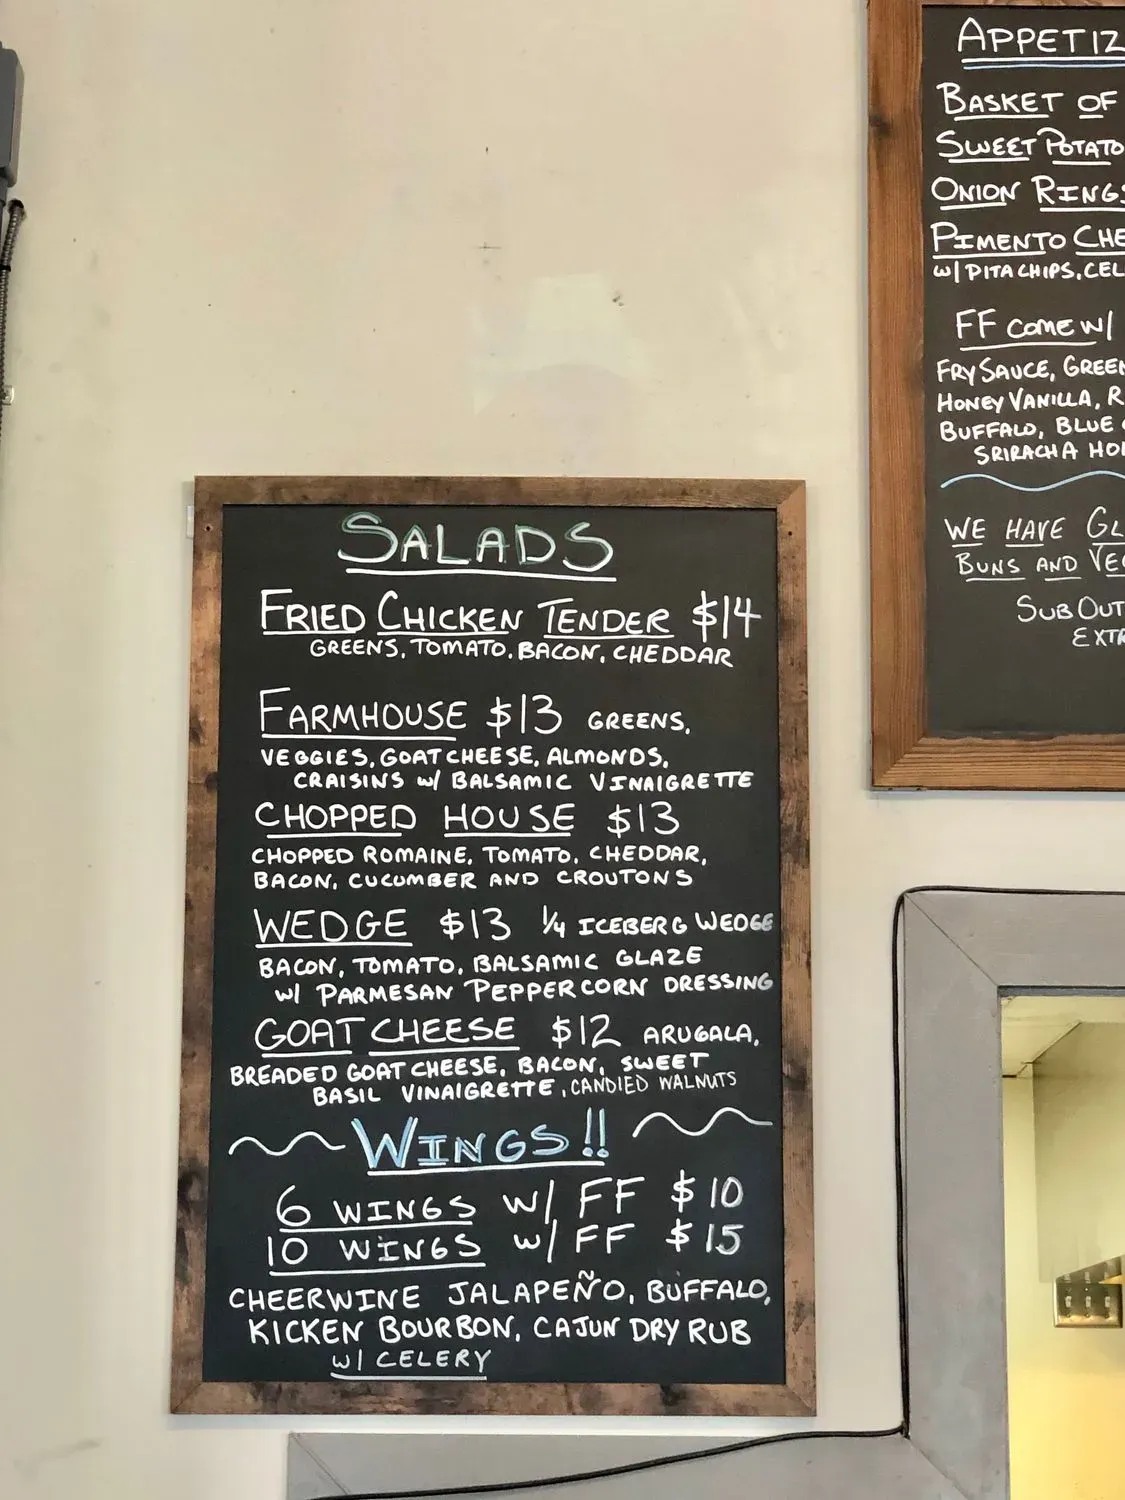 SALADS
FRIED CHICKEN TENDER $14
GREENS, TOMATO, BACON, CHEDDAR
FARMHOUSE $13 GREENS,
VEGGIES, GOAT CHEESE, ALMONDS,
CRAISINS W/ BALSAMIC VINAIGRETTE
CHOPPED HOUSE $13
CHOPPED ROMAINE, TOMATO, CHEDDAR,
BACON, CUCUMBER AND CROUTONS
WEDGE $13 1/4 ICEBERG WEDGE
BACON, TOMATO, BALSAMIC GLAZE
W/ PARMESAN PEPPERCORN DRESSING
GOAT CHEESE $12 ARUGALA,
BREADED GOAT CHEESE, BACON, SWEET
BASIL VINAIGRETTE, CANDIED WALNUTS
WINGS!!
6 WINGS W/ FF $10
10 WINGS W/ FF $15
CHEERWINE JALAPEÑO, BUFFALO,
KICKEN BOURBON, CAJUN DRY RUB
W/ CELERY
APPETIZ
BASKET OF
SWEET POTATO
ONION RINGS
PIMENTO CHE
W/ PITA CHIPS, CEL
FF COME W/
FRY SAUCE, GREEN
HONEY VANILLA, R
BUFFALO, BLUE
SRIRACHA HO
WE HAVE GL
BUNS AND VEG
SUB OUT
EXTR